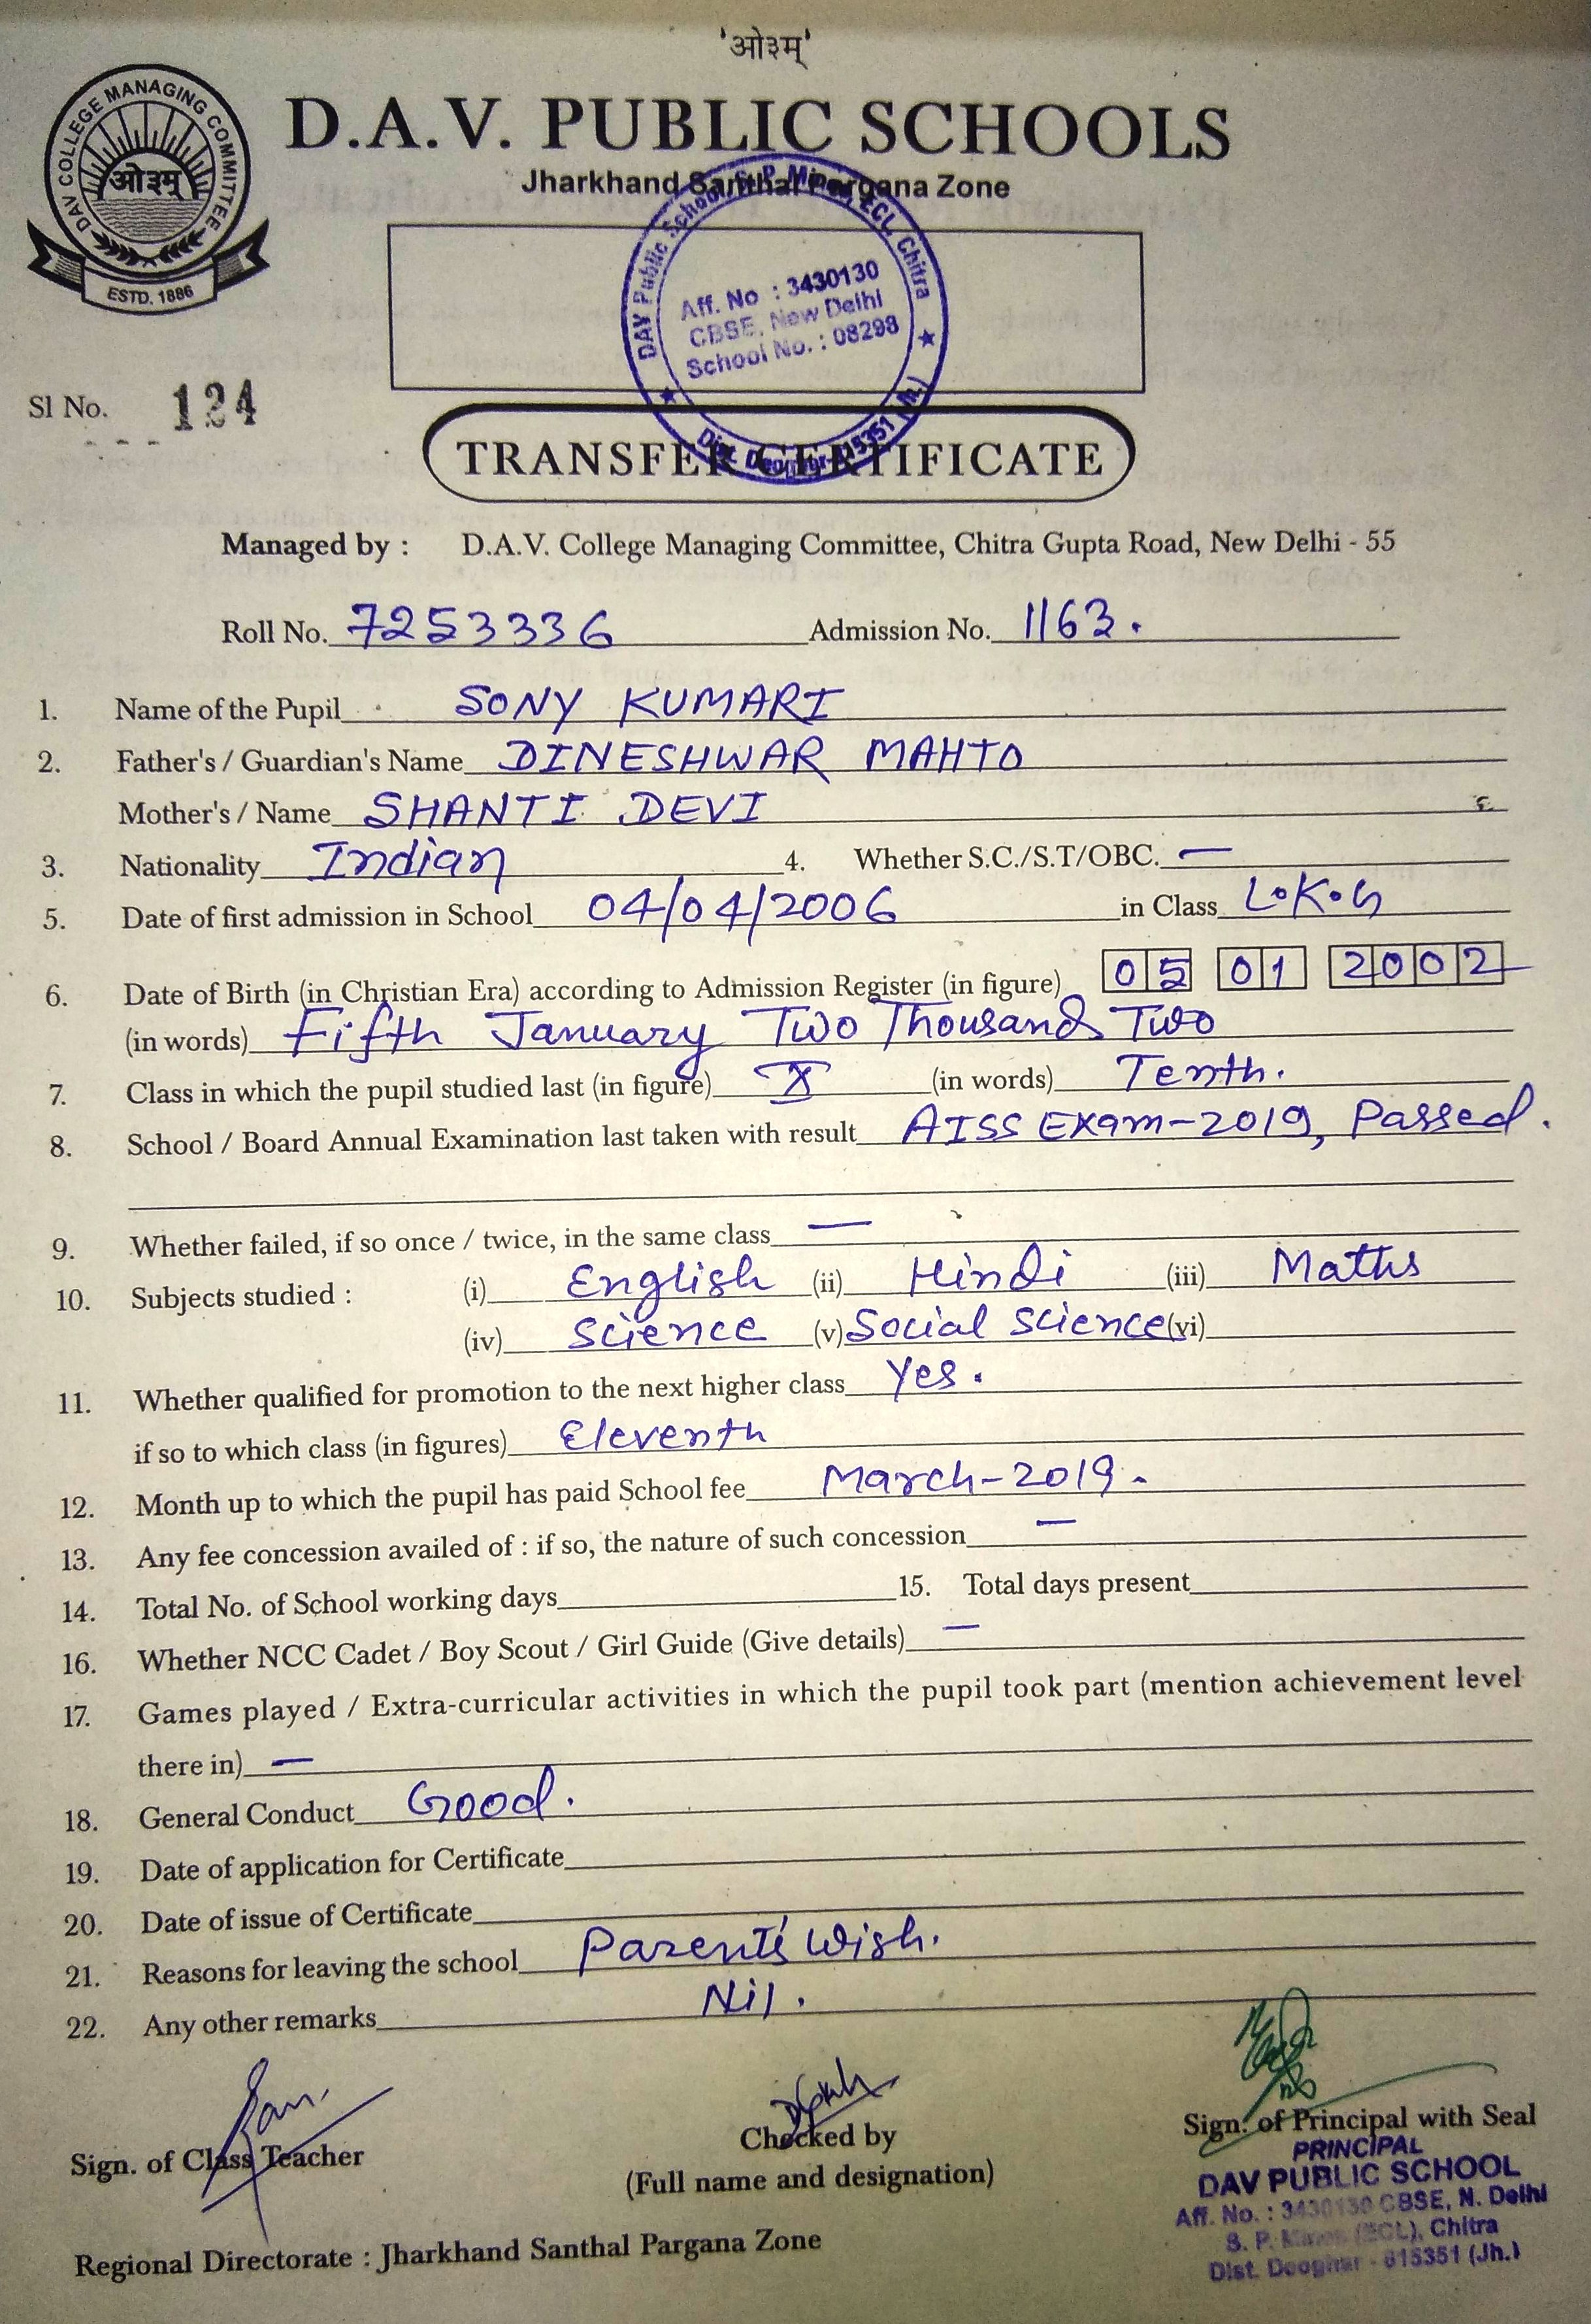 'ओ३म्'
DAV COLLEGE MANAGING COMMITTEE
ओ३म्
ESTD. 1886
D.A.V. PUBLIC SCHOOLS
Jharkhand Santhal Pargana Zone
DAV Public School, S. P. Mines, ECL, Chitra
Aff. No : 3430130
CBSE, New Delhi
School No. : 08298
Dist. Deoghar-815351 (Jh.)
Sl No. 124
TRANSFER CERTIFICATE
Managed by : D.A.V. College Managing Committee, Chitra Gupta Road, New Delhi - 55
Roll No. 7253336 Admission No. 1163.
1. Name of the Pupil SONY KUMARI
2. Father's / Guardian's Name DINESHWAR MAHTO
Mother's / Name SHANTI DEVI
3. Nationality Indian 4. Whether S.C./S.T/OBC. —
5. Date of first admission in School 04/04/2006 in Class L.K.G
6. Date of Birth (in Christian Era) according to Admission Register (in figure) 05 01 2002
(in words) Fifth January Two Thousand Two
7. Class in which the pupil studied last (in figure) X (in words) Tenth.
8. School / Board Annual Examination last taken with result AISS Exam-2019, Passed.
9. Whether failed, if so once / twice, in the same class —
10. Subjects studied : (i) English (ii) Hindi (iii) Maths
(iv) Science (v) Social Science (vi)
11. Whether qualified for promotion to the next higher class Yes.
if so to which class (in figures) Eleventh
12. Month up to which the pupil has paid School fee March-2019.
13. Any fee concession availed of : if so, the nature of such concession —
14. Total No. of School working days 15. Total days present
16. Whether NCC Cadet / Boy Scout / Girl Guide (Give details) —
17. Games played / Extra-curricular activities in which the pupil took part (mention achievement level
there in) —
18. General Conduct Good.
19. Date of application for Certificate
20. Date of issue of Certificate
21. Reasons for leaving the school Parent's Wish.
22. Any other remarks Nil.
Sign. of Class Teacher
Checked by
(Full name and designation)
Sign. of Principal with Seal
PRINCIPAL
DAV PUBLIC SCHOOL
Aff. No. : 3430130 CBSE, N. Delhi
S. P. Mines (ECL), Chitra
Dist. Deoghar - 815351 (Jh.)
Regional Directorate : Jharkhand Santhal Pargana Zone